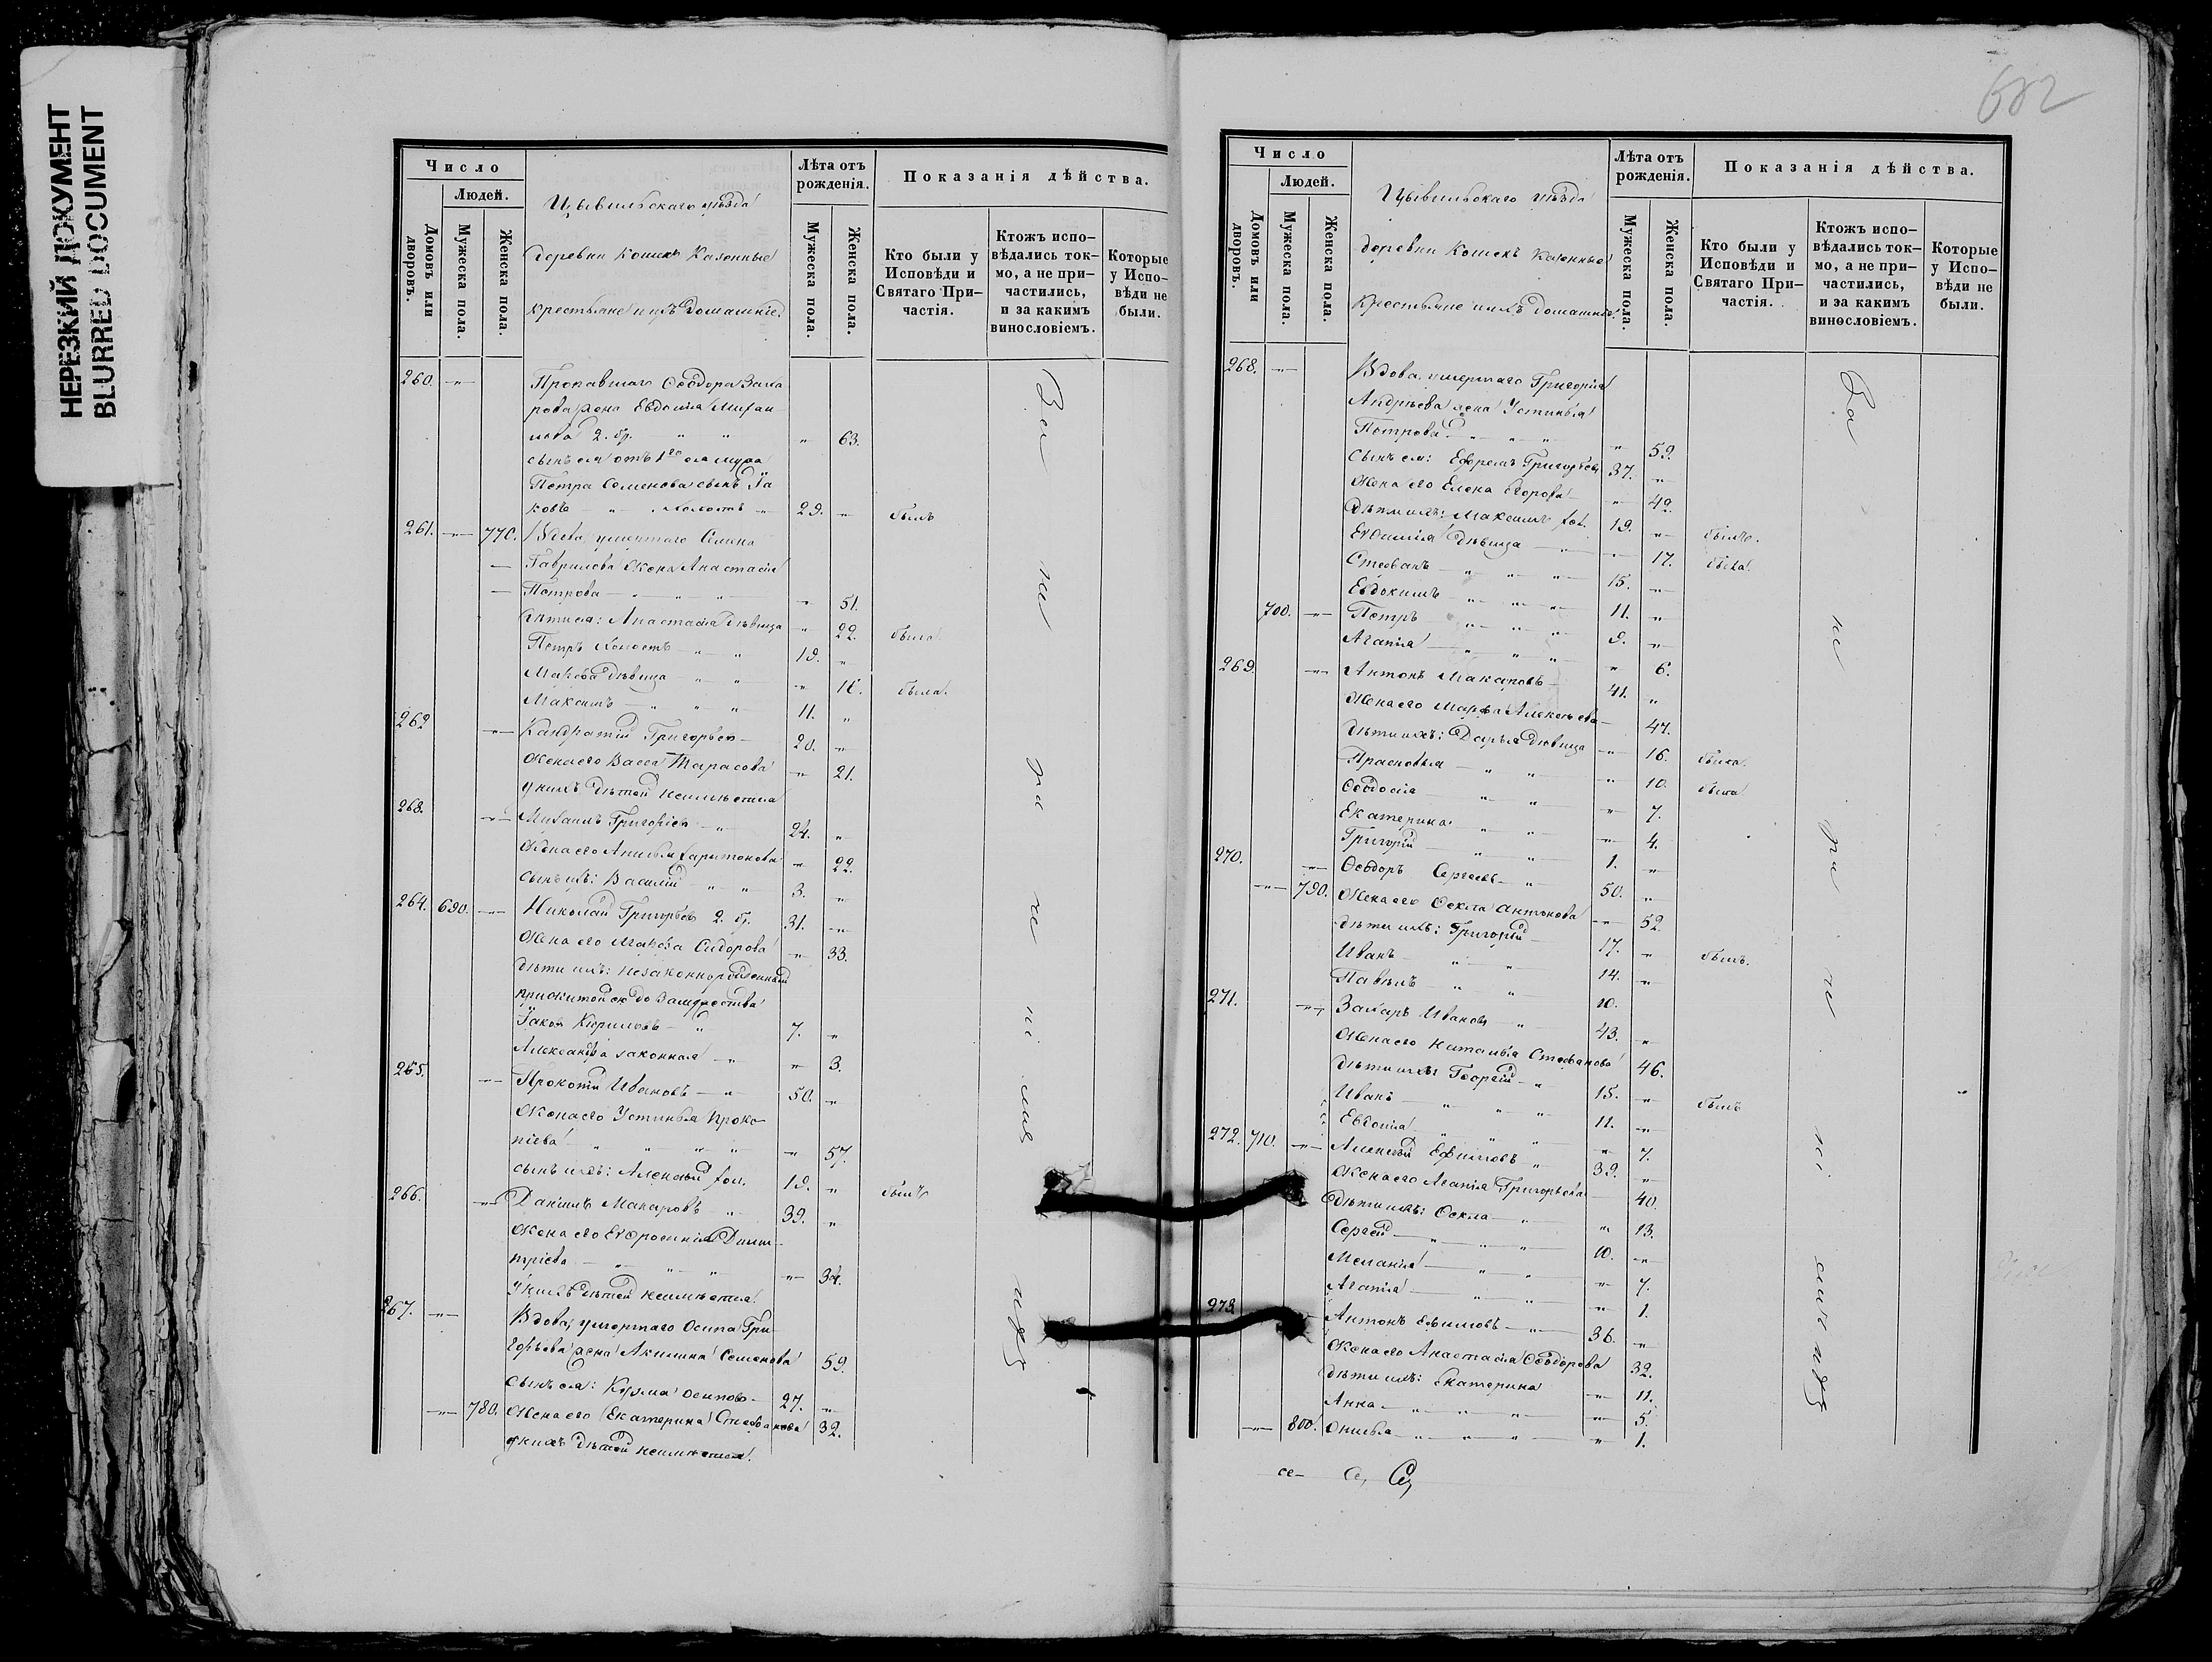 НЕРЕЗКИЙ ДОКУМЕНТ
BLURRED DOCUMENT
Число
Людей.
Домовъ или дворовъ.
Мужеска пола.
Женска пола.
Цывильскаго уѣзда
деревни Кошекъ Казенные
крестьяне и ихъ домашніе.
Лѣта отъ рожденія.
Мужеска пола.
Женска пола.
Показанія дѣйства.
Кто были у Исповѣди и Святаго Причастія.
Ктожъ исповѣдались токмо, а не причастились, и за какимъ винословіемъ.
Которые у Исповѣди не были.
260. Пропавшаго Ѳеодора Заха
рова жена Евдокія Михаи
лова 2. бр. " " " 63.
сынъ ея отъ 1го ея мужа
Петра Семенова сынъ Іа
ковъ " холостъ " 29. " былъ
261. 770. Вдова, умершаго Семена
Гаврилова жена Анастасія
Петрова " " " " 51.
дѣти ея: Анастасія дѣвица " 22. была.
Петръ холостъ " " 19. "
Марѳа дѣвица " " " 16. была.
Максимъ " " " 11. "
262 Кандратій Григорьевъ 20. "
Жена его Васса Тарасова " 21.
у нихъ дѣтей неимѣется
263. Михаилъ Григорьевъ " 24. "
Жена его Анисья Харитонова " 22.
сынъ ихъ: Василій " " 3. "
264. 690. Николай Григорьевъ 2. бр. 31. "
Жена его Марѳа Сидорова " 33.
дѣти ихъ: незаконнорожденный
прижитой ею до замужества
Іаковъ Кириловъ " 7. "
Александра законная " " 3.
265. Прокопій Ивановъ " 50. "
Жена его Устинья Проко
піева " " " " " 57.
сынъ ихъ: Алексѣй хол. 19. " былъ
266. Даніилъ Макаровъ " 39. "
Жена его Евфросинія Дими
тріева " " " " 34.
У нихъ дѣтей неимѣется.
267. Вдова, умершаго Осипа Гри
горьева жена Акилина Семенова 59.
сынъ ея: Кузма Осиповъ 27. "
780. Жена его Екатерина Стефанова 32.
у нихъ дѣтей неимѣется.
За не ра че ні емъ
Число
Людей.
Домовъ или дворовъ.
Мужеска пола.
Женска пола.
Цывильскаго уѣзда
деревни Кошекъ Казенные
крестьяне и ихъ домашніе.
Лѣта отъ рожденія.
Мужеска пола.
Женска пола.
Показанія дѣйства.
Кто были у Исповѣди и Святаго Причастія.
Ктожъ исповѣдались токмо, а не причастились, и за какимъ винословіемъ.
Которые у Исповѣди не были.
268. Вдова, умершаго Григорія
Андрѣева жена Устинья
Петрова " " " " 59.
Сынъ ея: Ефремъ Григорьевъ 37. "
Жена его Елена Егорова " 42.
Дѣти ихъ: Максимъ хол. 19. " былъ.
Евфимія дѣвица " " 17. была.
Стефанъ " " " 15. "
Евдокимъ " " " 11. "
700. Петръ " " " 9. "
Агапія " " " " 6.
269. Антонъ Макаровъ 41. "
Жена его Марфа Алексѣева 47.
дѣти ихъ: Дарья дѣвица " 16. была.
Прасковья " " " 10. была.
Ѳеодосія " " " 7.
Екатерина " " " 4.
Григорій " " 1. "
270. Ѳеодоръ Сергѣевъ " 50. "
790. Жена его Ѳекла Антонова " 52.
дѣти ихъ: Григорій 17. " былъ.
Иванъ " " 14. "
Павелъ " " 10.
271. Захаръ Ивановъ " 43. "
Жена его Наталья Стефанова 46.
дѣти ихъ: Георгій " 15. " былъ
Иванъ " " " 11. "
Евдокія " " " " 7.
272. 710. Алексѣй Ефимовъ " 39. "
Жена его Агапія Григорьева 40.
дѣти ихъ: Ѳекла " " 13.
Сергей " " " 10. "
Меланія " " " 7.
Агапія " " " 1.
273. Антонъ Ефимовъ " 36. "
Жена его Анастасія Ѳеодорова 32.
дѣти ихъ: Екатерина " 11.
Анна " " " " 5.
800. Анисья " " " " 1.
За не ра че ні емъ